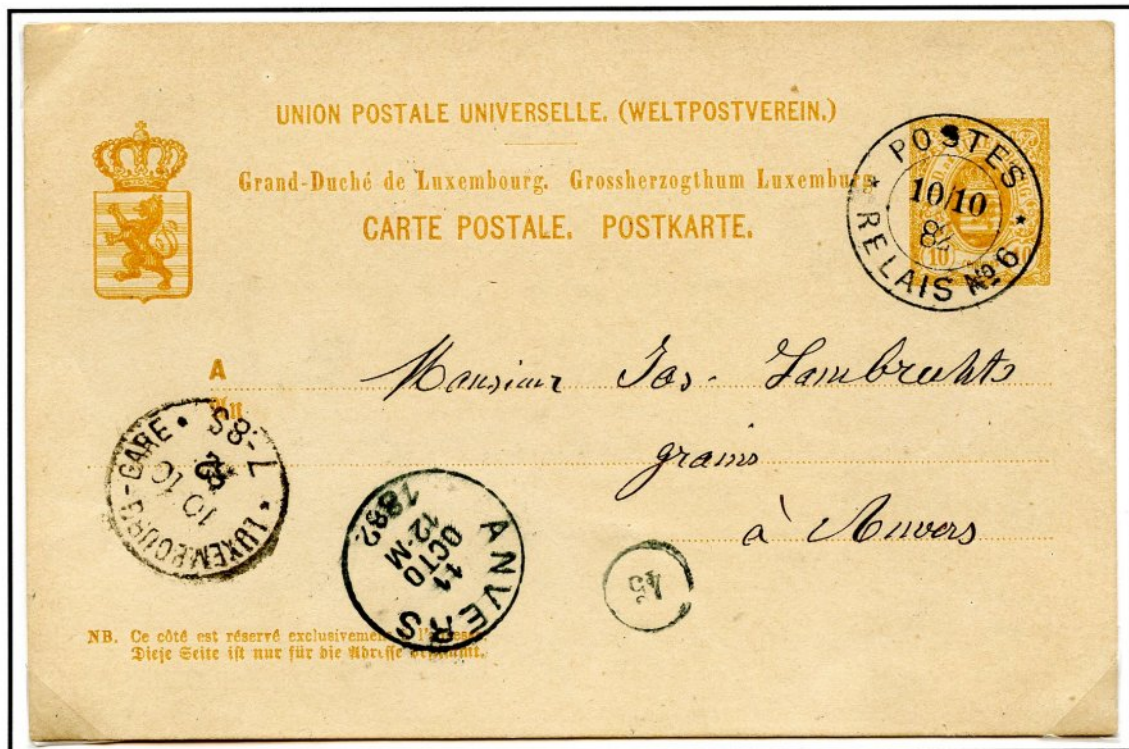 UNION POSTALE UNIVERSELLE. (WELTPOSTVEREIN.)
Grand-Duché de Luxembourg. Grossherzogthum Luxemburg
CARTE POSTALE. POSTKARTE.
POSTES
10/10
82
RELAIS No 6
10
A
An
Monsieur Jos. Lambrechts
grains
à Anvers
LUXEMBOURG-GARE
7-8S
10 10
82
ANVERS
11
OCTO
12-M
1882
45
NB. Ce côté est réservé exclusivement à l'adresse.
Diese Seite ist nur für die Adresse bestimmt.